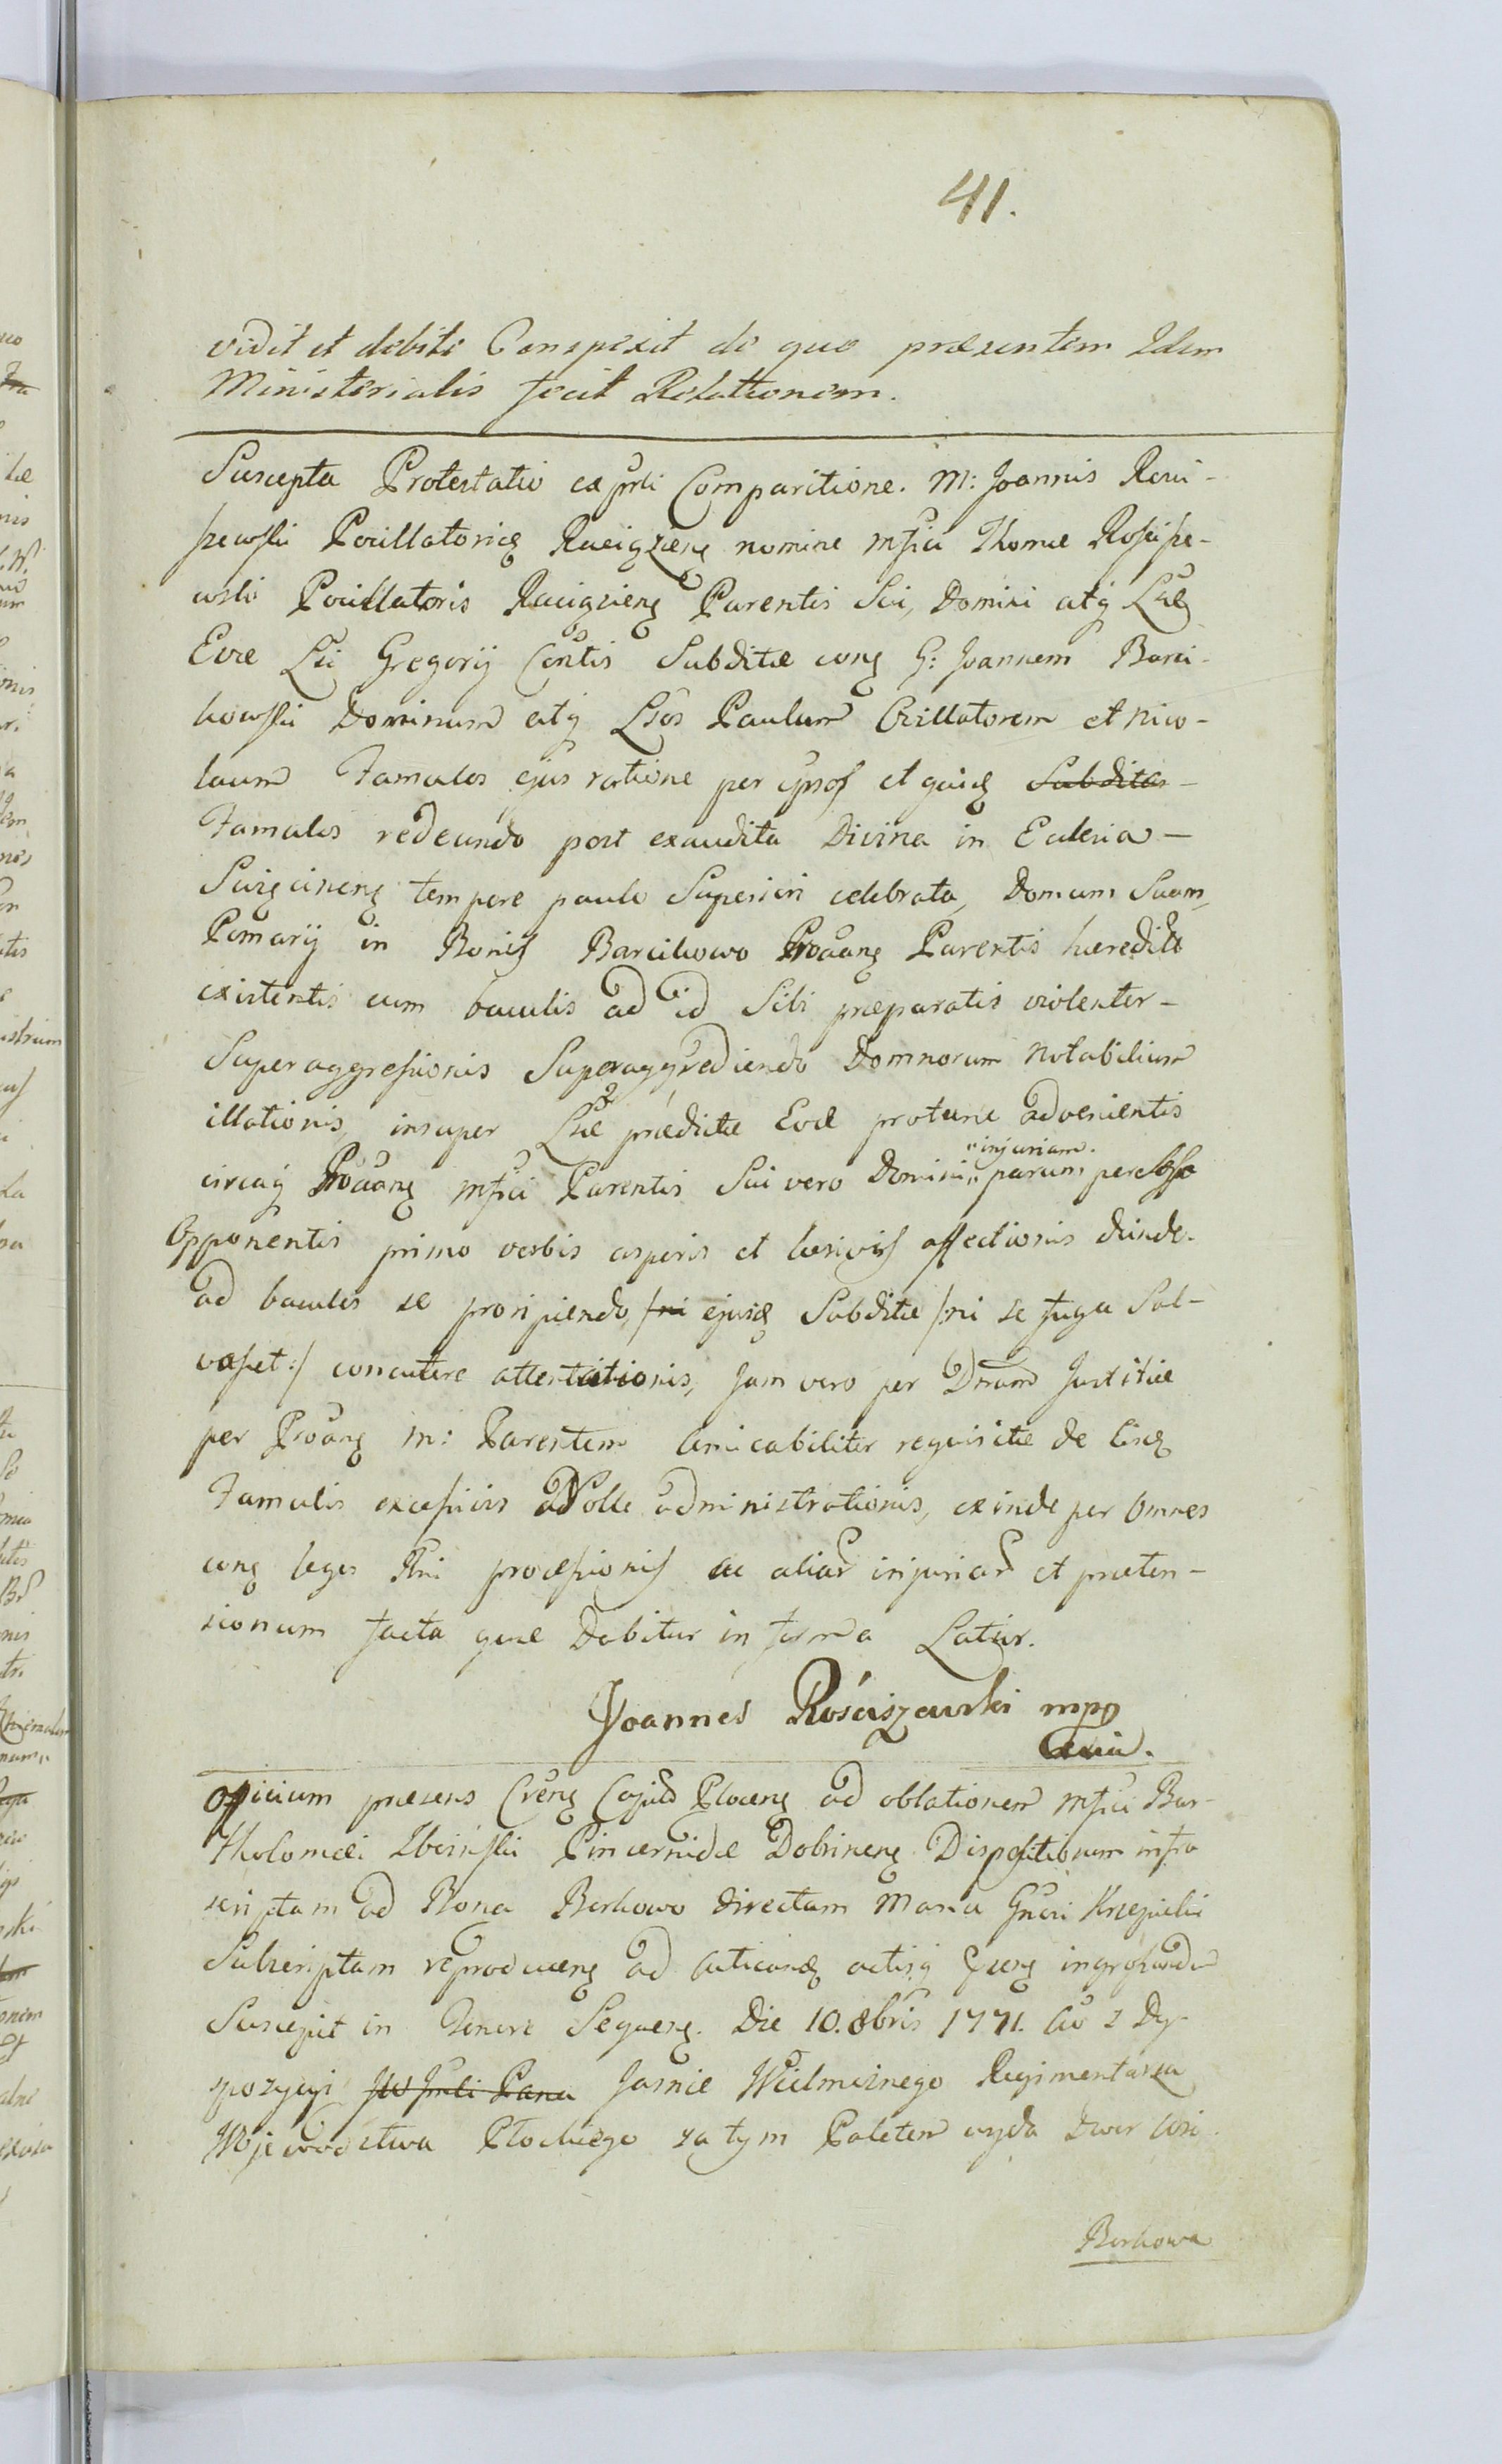 41.
vidit et debite Conspexit de quo præsentem Idem
Ministerialis fecit Relationem.
Suscepta Protestatio ex prsli Comparitione. M: Joannis Rosci-
szewski Pocillatoricz Raciązieng nomine mfici Thomæ Roscisze-
wski Pocillatoris Raciązieng Parentis Sui, Domini atq Lsæ
Evæ Lsi Gregorij Contis Subditæ cong G: Joannem Barci-
kowski Dominum atq Lsos Paulum Oxillatorem et Nico-
laum Famulos ejus ratione per ipsos et quidg Subditos -
Famulos redeundo post exaudita Divina in Eclesia -
tempore paulo Superiori celebrata, Domum Suam,
Pomarij in Bonis Barcikowo Proaang Parentis hæredito
existentis cum baculis ad id Sibi præparatis violenter -
Superaggressionis Superaggrediendo Domnorum notabilium
illationis, insuper Lsæ prædictæ Evæ protunc advenientis
circaq Proaang mfici Parentis Sui vero Domini „injuriam. parum percelso
Opponentis primo verbis asperis et læsivis affectionis deinde
ad baculos se proripiendo, /ni ejusdg Subditæ /:ni se fuga Sal-
vasset:/ concutere attentationis, Jam vero per Dnum Justitiæ
per Proang M: Parentem amicabiliter requisitæ de iisdg
Famulis excessivis Nolle administrationis, exinde per Omnes
cong leges Rni processionis ac aliar injuriar et præten-
sionum facta quæ Dabitur in forma Latior.
Joannes Rościszewski mpp

Officium præsens Creng Capitlo Ploceng ad oblationem mfici Bar-
tholomæi Zboinski Pincernidæ Dobrineng Dispositionem infra
scriptam ad Bona Borkowo directam Manu Gnosi Krzepicki
Subscriptam reproduceng ad acticandg actisq ingrossandum
Suscepit in Tenore Sequeng. Die 10. 8bris 1771. Ao z Dy-
spozycyi Jasnie Wielmoznego Regimentarza
Wojewodztwa Płockiego za tym Paletem wyda Dwor wsi
Borkowa